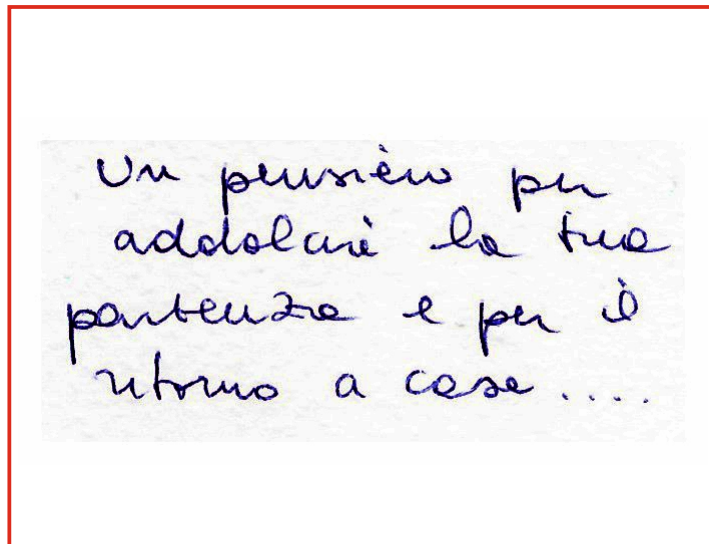 Un pensiero per
addolcire la tua
partenza e per il
ritorno a casa.....